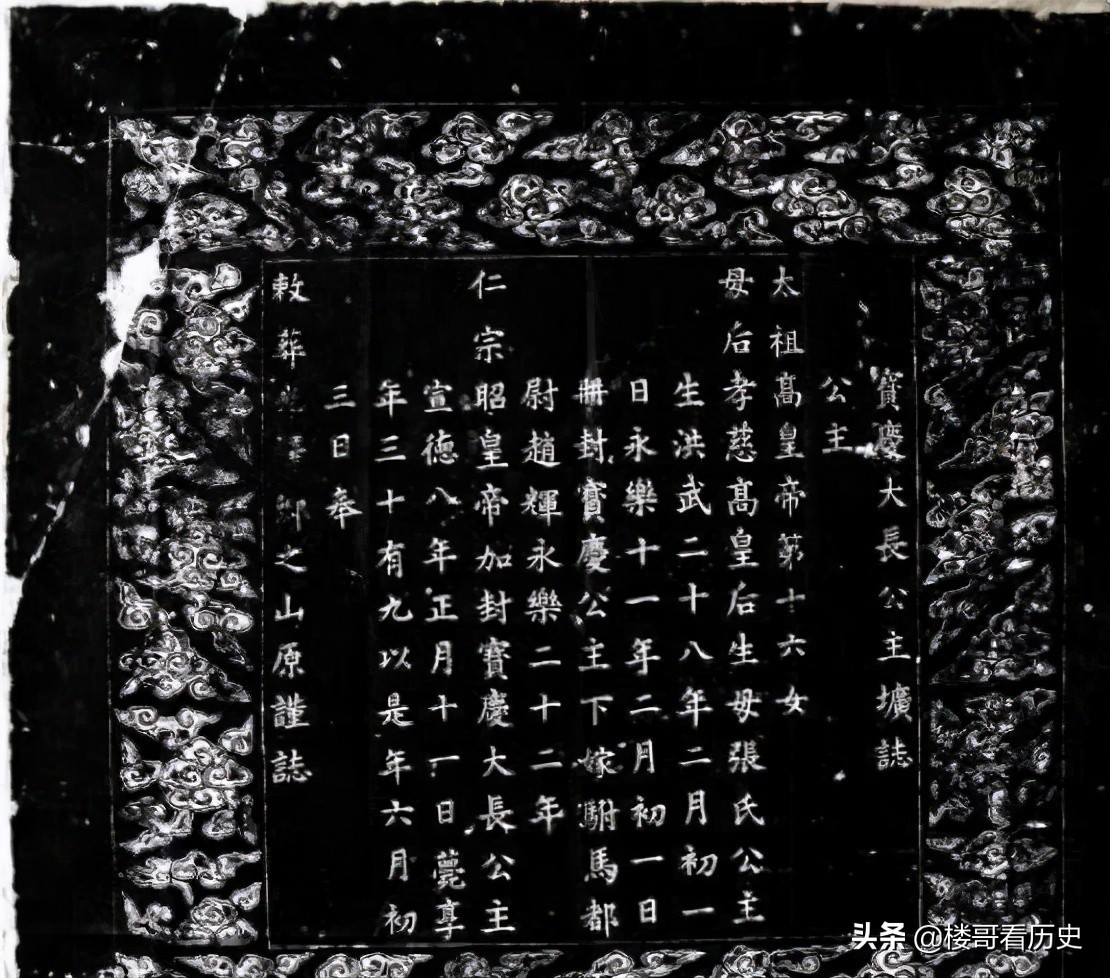 寶慶大長公主壙誌
公主
太祖高皇帝第十六女
母后孝慈高皇后生母張氏公主
生洪武二十八年二月初一
日永樂十一年二月初一日
冊封寶慶公主下嫁駙馬都
尉趙輝永樂二十二年
仁宗昭皇帝加封寶慶大長公主
宣德八年正月十一日薨享
年三十有九以是年六月初
三日奉
敕葬鄉之山原謹誌
头条 @楼哥看历史